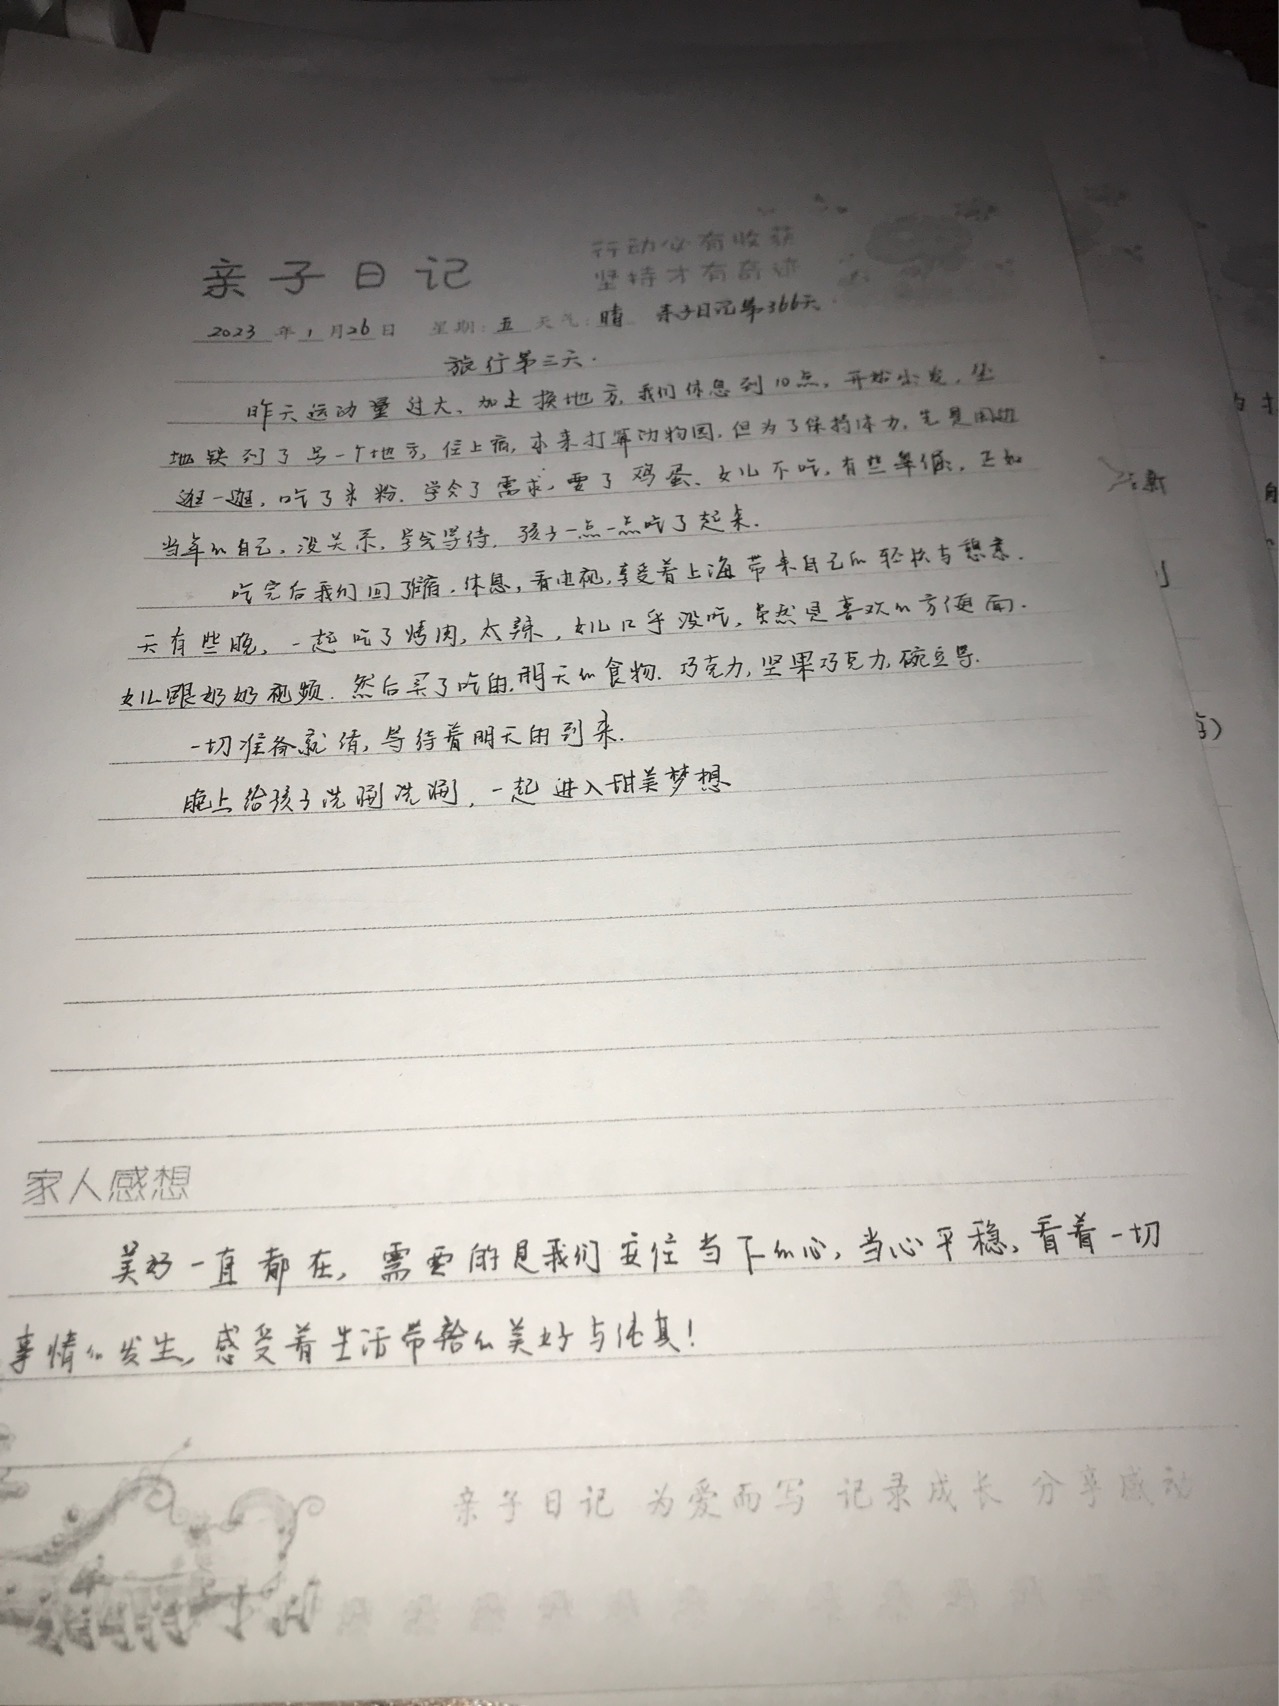 亲子日记
行动必有收获
坚持才有奇迹
2023年1月26日 星期:五 天气:晴 亲子日记第366天.
旅行第三天.
昨天运动量过大、加上换地方,我们休息到10点,开始出发,坐
地铁到了另一个地方,住上宿,本来打算动物园,但为了保持体力,先是周边
逛一逛,吃了米粉.学会了需求,要了鸡蛋、女儿不吃,有些单低,正如
当年的自己,没关系,学会等待,孩子一点一点吃了起来.
吃完后我们回了宿,休息,看电视,享受着上海带来自己的轻松与惬意.
天有些晚,一起吃了烤肉,太辣,女儿口乎没吃,虽然是喜欢的方便面.
女儿跟奶奶视频.然后买了吃的,明天的食物.巧克力,坚果巧克力,碗豆
一切准备就绪,等待着明天的到来.
晚上给孩子洗涮洗涮,一起进入甜美梦想
家人感想
美好一直都在,需要的是我们安住当下的心,当心平稳,看着一切
事情的发生,感受着生活带给的美好与纯真!
亲子日记 为爱而写 记录成长 分享感动